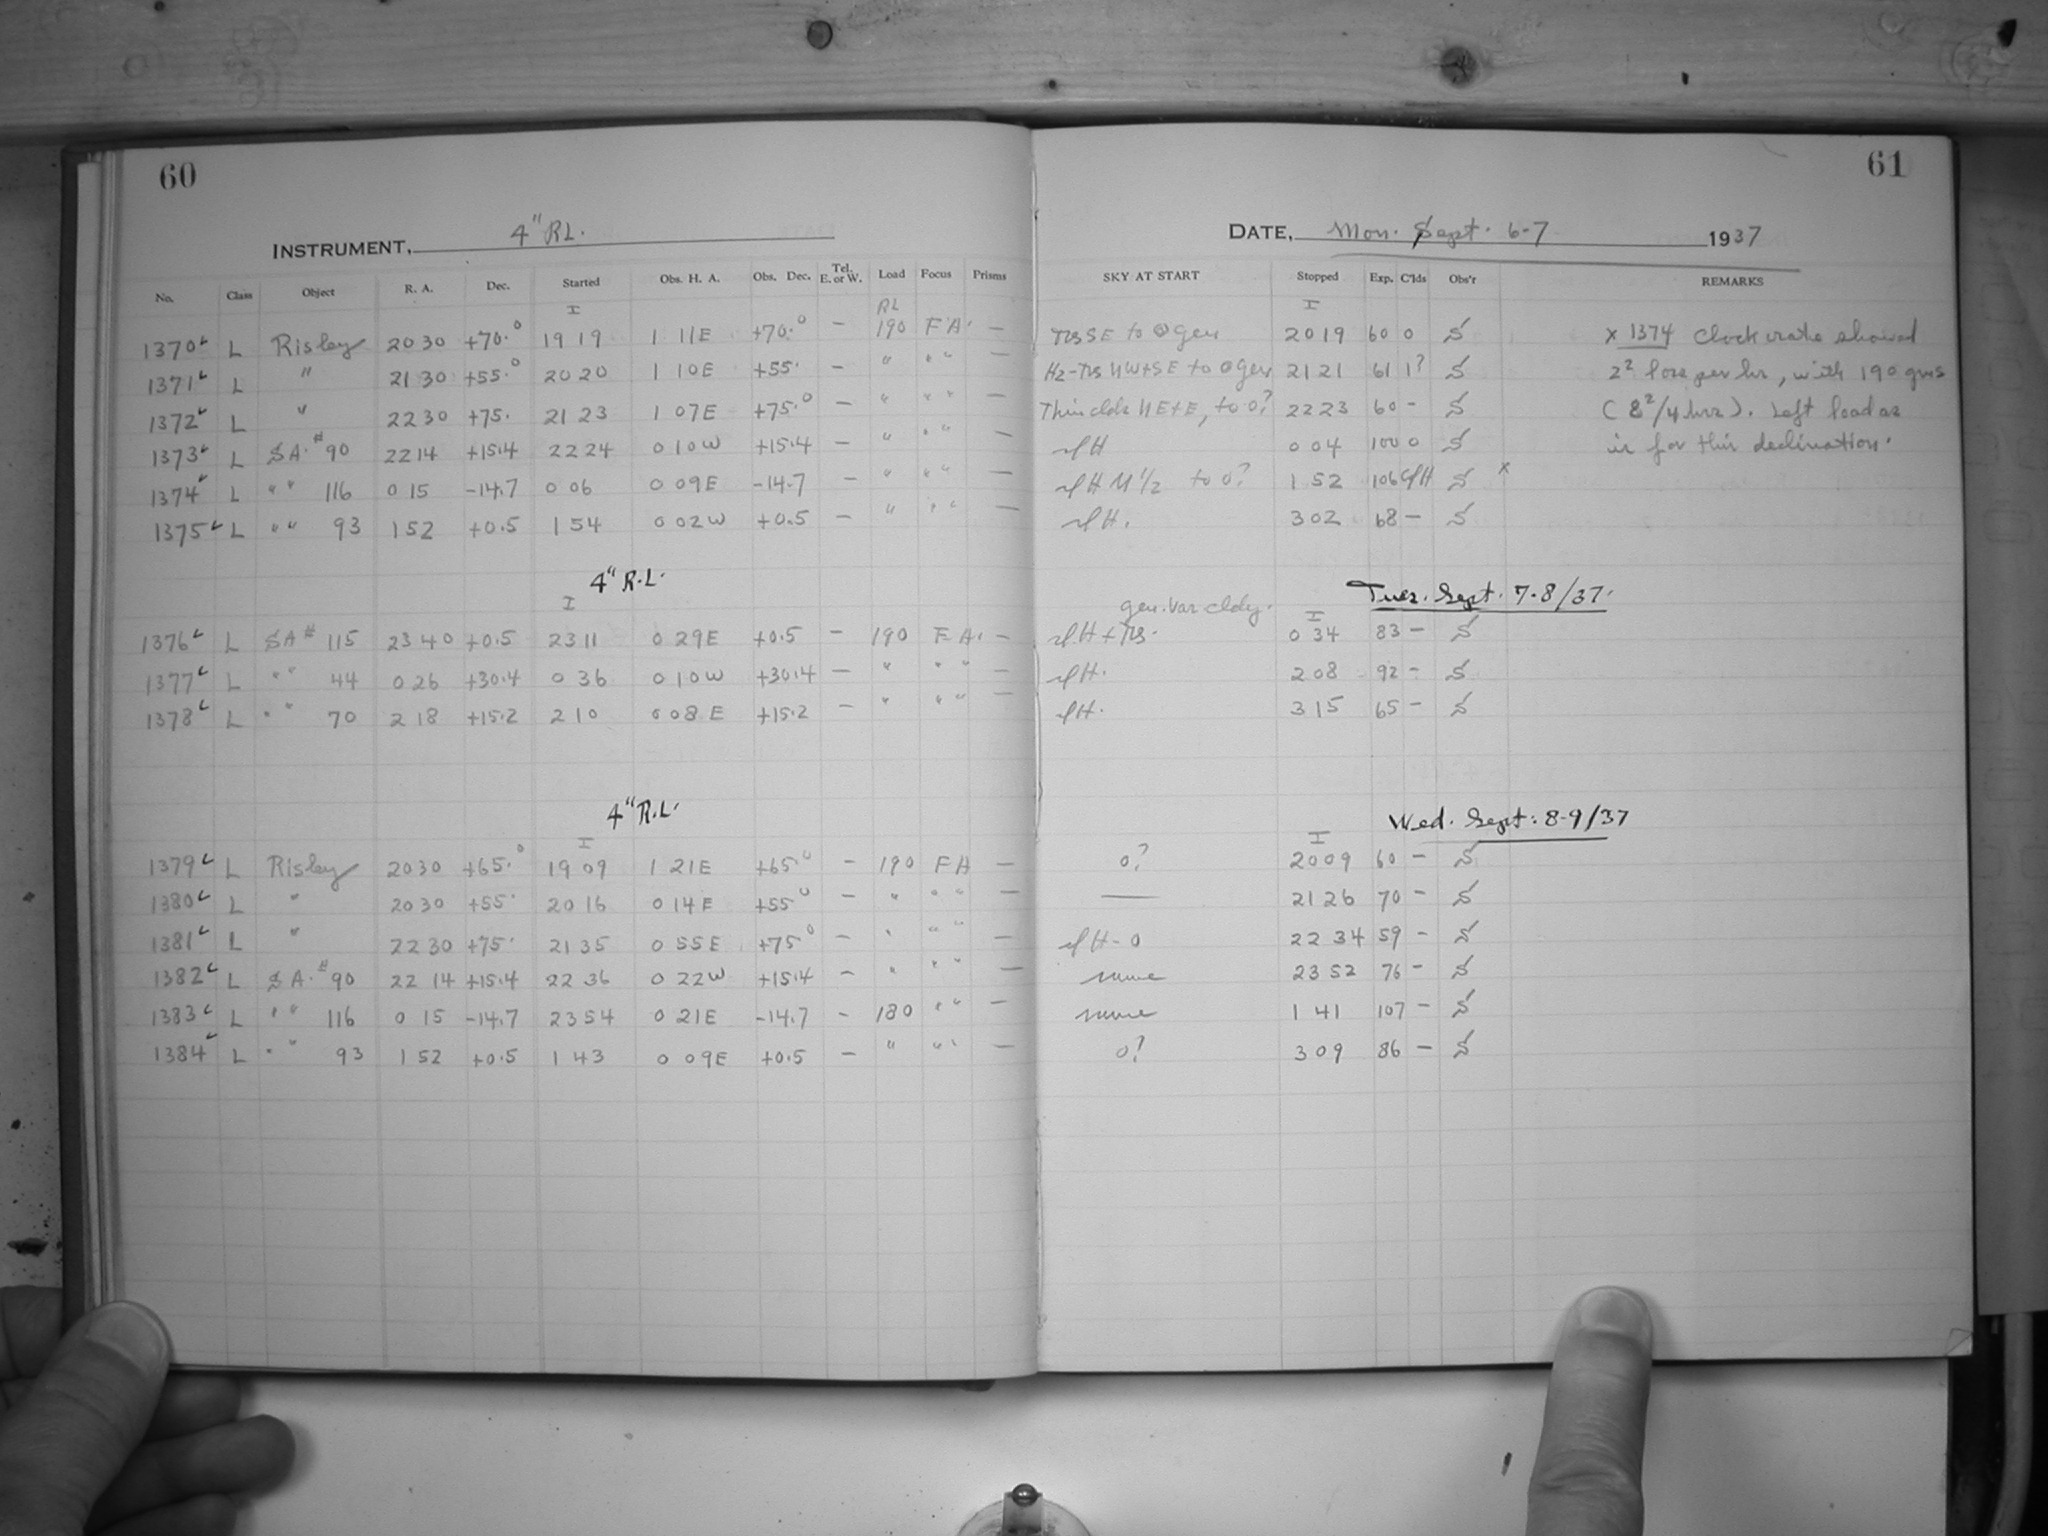 60
INSTRUMENT, 4" RL.
No. Class Object R. A. Dec. Started Obs. H. A. Obs. Dec. Tel. E. or W. Load Focus Prisms
I RL
1370 L Risley 20 30 +70.° 19 19 1 11E +70.° — 190 FA. —
1371 L " 21 30 +55.° 20 20 1 10E +55. — " " " —
1372 L " 22 30 +75. 21 23 1 07E +75.° — " " " —
1373 L SA. # 90 22 14 +15.4 22 24 0 10W +15.4 — " " " —
1374 L " " 116 0 15 -14.7 0 06 0 09E -14.7 — " " " —
1375 L " " 93 1 52 +0.5 1 54 0 02W +0.5 — " " " —
4" R.L.
I
1376 L SA # 115 23 40 +0.5 23 11 0 29E +0.5 — 190 FA. —
1377 L " " 44 0 26 +30.4 0 36 0 10W +30.4 — " " " —
1378 L " " 70 2 18 +15.2 2 10 0 08E +15.2 — " " " —
4" R.L.
I
1379 L Risley 20 30 +65.° 19 09 1 21E +65.° — 190 FA —
1380 L " 20 30 +55. 20 16 0 14E +55° — " " " —
1381 L " 22 30 +75. 21 35 0 55E +75° — " " " —
1382 L SA. # 90 22 14 +15.4 22 36 0 22W +15.4 — " " " —
1383 L " " 116 0 15 -14.7 23 54 0 21E -14.7 — 180 " " —
1384 L " " 93 1 52 +0.5 1 43 0 09E +0.5 — " " " —
61
DATE, Mon. Sept. 6-7 1937
SKY AT START Stopped Exp. C'lds Obs'r REMARKS
I
SE to 0 gen 20 19 60 0 x 1374 Clock rate showed
NW+SE to 0 gen 21 21 61 1? 2² lose per hr, with 190 gms
Thin clds NE+E, to 0? 22 23 60 - (8²/4 hrs). Left load as
H 0 04 100 0 is for this declination.
H N 1/2 to 0? 1 52 106 x
H. 3 02 68 —
Tues. Sept. 7-8/37.
gen. var. cldy. I
H + 0 34 83 —
H. 2 08 92 -
H. 3 15 65 -
Wed. Sept. 8-9/37
I
0? 20 09 60 —
— 21 26 70 -
H - 0 22 34 59 -
same 23 52 76 -
same 1 41 107 -
0? 3 09 86 —